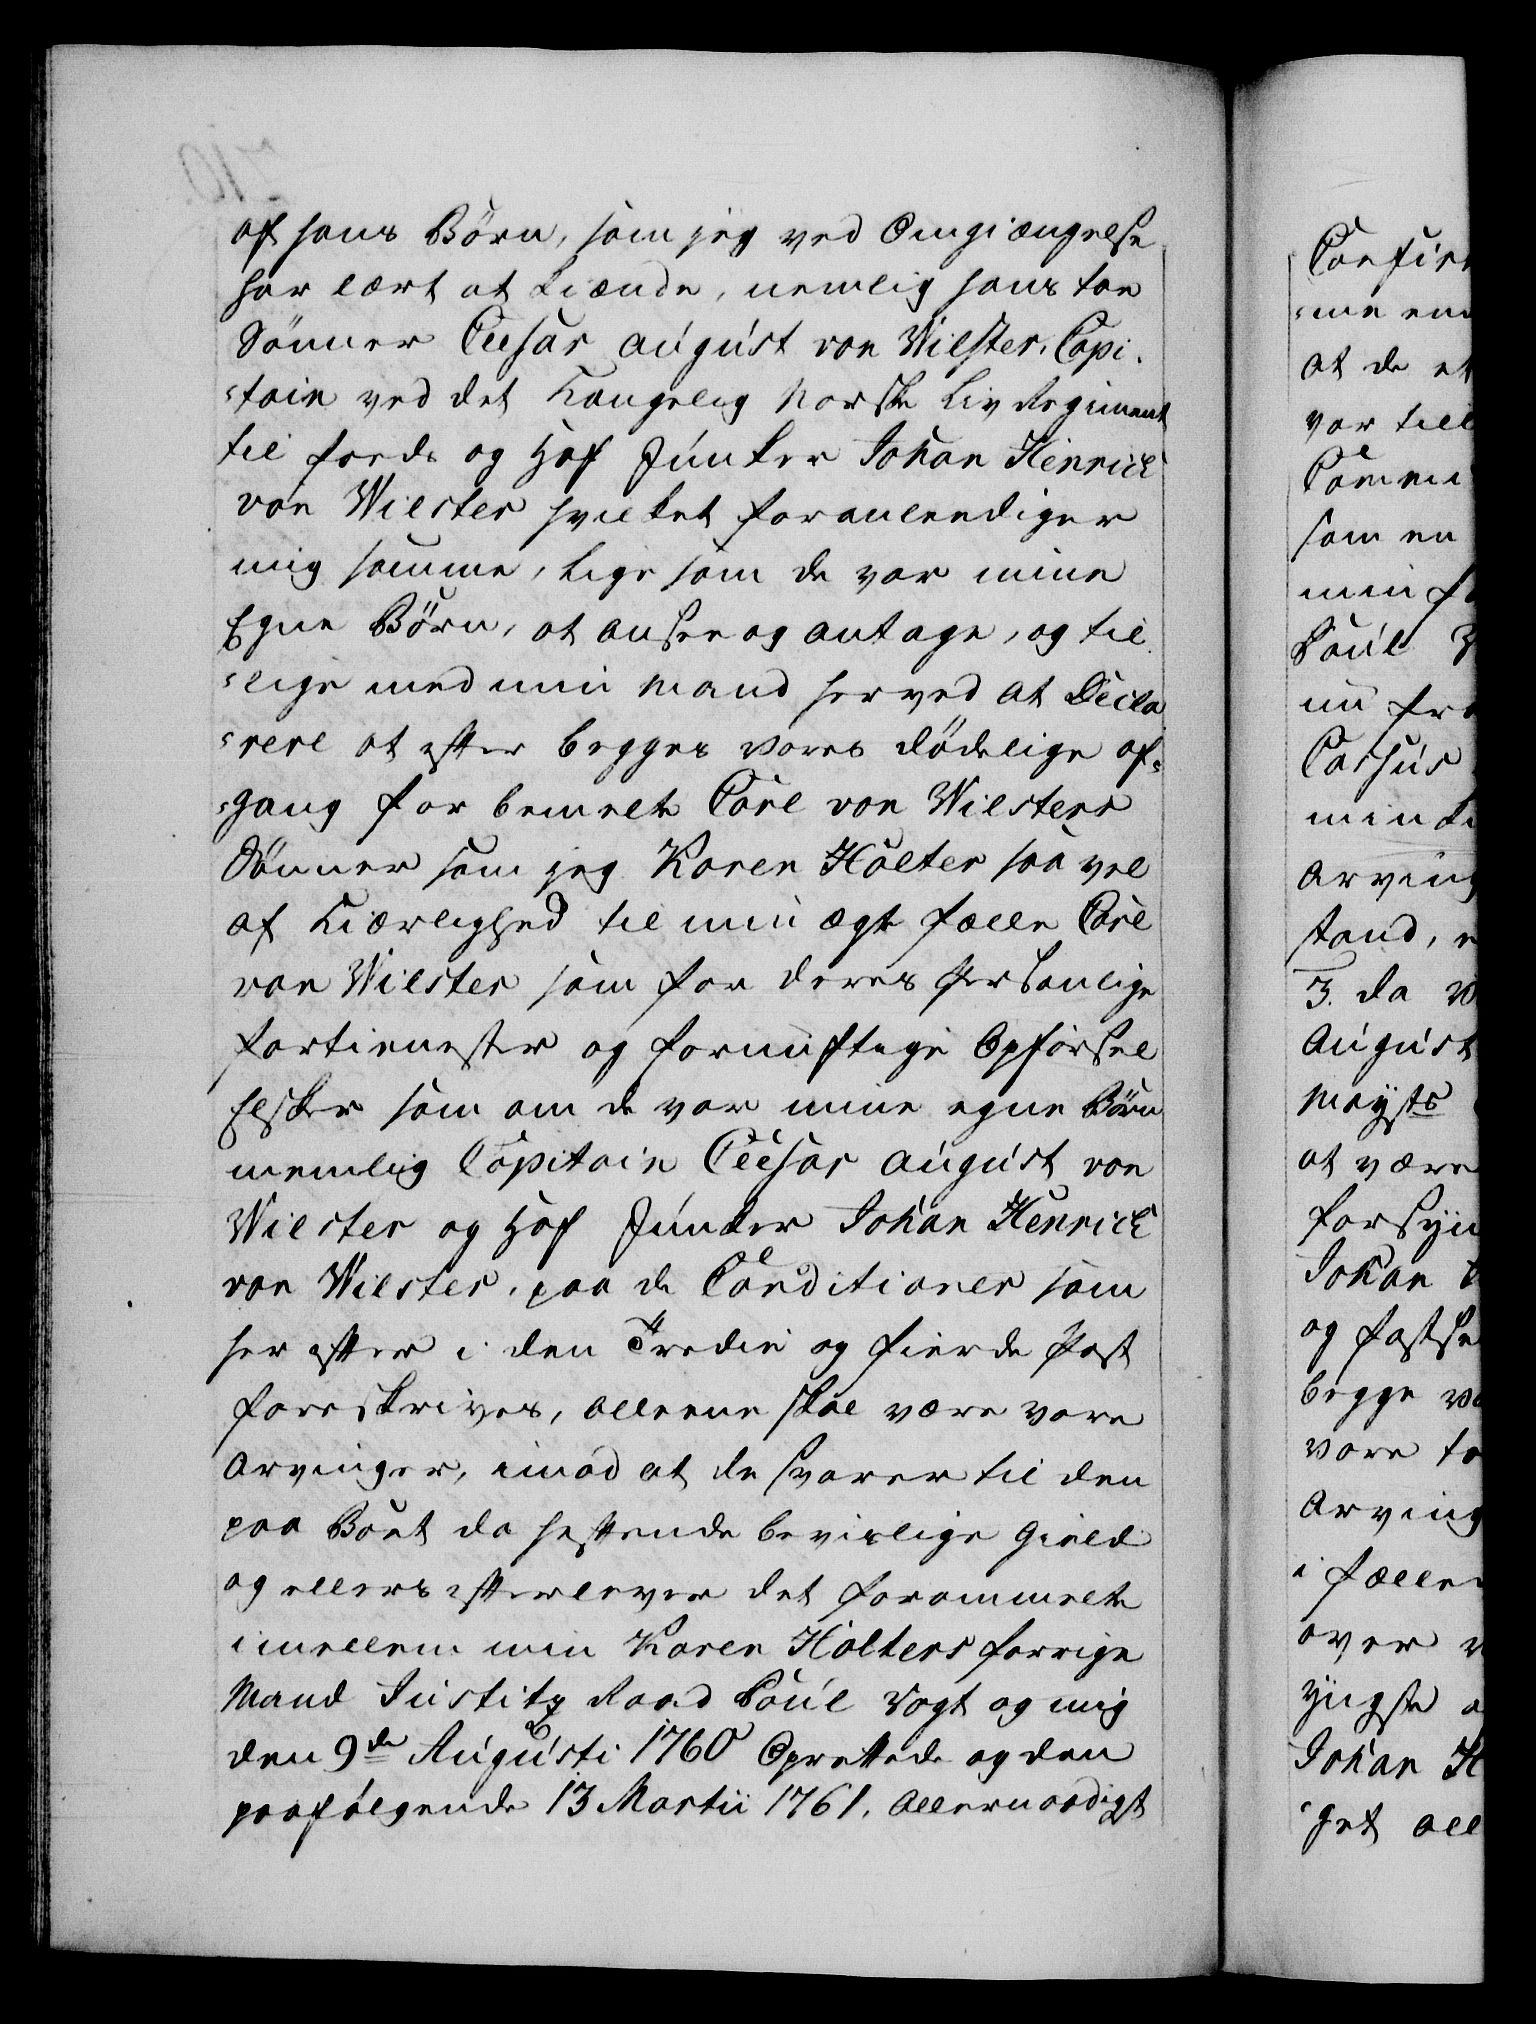 af hans Börn, som jeg ved Omgiængelse
har lært at kiænde, nemlig hans toe
Sönner Cæsar August von Wilster, Capi-
-tain ved det Kongelig Norske Liv Regiment
til foeds og Hof Junker Johan Henrich
von Wilster hvilket foranlendiger
mig samme, lige som de var mine
Egne Börn, at ansee og antage, og til
-lige med min Mand herved at Decla
-rere at efter begges vores dödelige af-
-gang for bemelte Carl von Wilsters
Sönner som jeg Karen Holter saa vel
af Kiærlighed til min ægte fælle Carl
von Wilster som for deres Personlige
fortienester og fornuftige Opförsel
Elsker som om de var mine egne Börn
nemlig Capitain Cæsar August von
Wilster og Hof Junker Johan Henrich
von Wilster, paa de Conditioner som
her efter i den Tredie og fierde Post
foreskrives, alleene skal være vore
Arvinger, imod at de svarer til den
paa Boet da heftende bevislige Gield
og ellers efterlever det forommelte
imellem min Karen Holters forrige
Mand Justitz Raad Poul Vogt og mig
den 9de Augusti 1760 Oprettede og den
paafölgende 13 Martii 1761. Allernaadigst
Confir
-me en
at de et
var till
Commi
som en
min f
Poul V
nu fr
Cassus
min k
Arving
stand, e
3. da V
August
Mayts
at være
forsyn
Johan
og fastse
begge v
vore to
Arving
i fælle
over v
yngste
Johan H
-get all